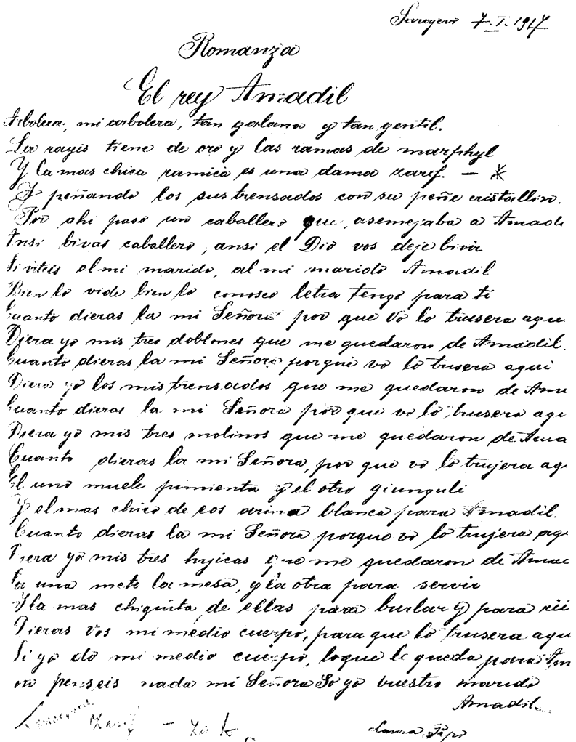 7.I.1917
Romanza
El rey Amadil
Arbolera, mi arbolera, tan galana y tan gentil.
La rayis tiene de oro y las ramas de marphyl
Y la mas chica ramica es una dama zarif -
peñando los sus trensados con su peñe cristallin.
Por ahi paso un caballero que, asemejaba a Amadi
Ansi bivas caballero, ansi el Dio vos deje bivir
Si viteis al mi marido, al mi marido Amadil
Bien lo vide bien lo conosco letra tengo para ti
Cuanto dieras la mi Señora por que vo lo trusera aqui
Diera yo mis tres doblones que me quedaron de Amadil.
Cuanto dieras la mi Señora porque vo lo trusera aqui
Diera yo los mis trensados que me quedaron de Ama
Cuanto dieras la mi Señora por que vo lo trusera aqu
Diera yo mis tres molinos que me quedaron de Ama
Cuanto dieras la mi Señora, por que vo lo trujera aq
El uno muele pimienta y el otro giunguli
Y el mas chico de eos arina blanca para Amadil
Cuanto dieras la mi Señora porque vo lo trujera aqu
Diera yo mis tres hijicas que me quedaron de Amad
La una mete la mesa, y la otra para servir
Y la mas chiquita de ellas para burlar y para rii
Dieras vos mi medio cuerpo, para que lo trusera aqu
Si yo do mi medio cuerpo, loque le queda para Am
no penseis nada mi Señora So yo vuestro marido
Amadil.